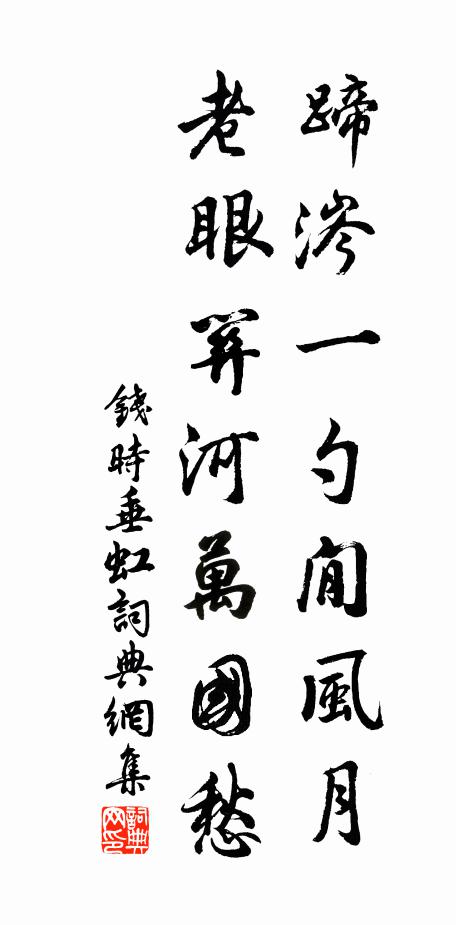 蹄涔一勺閒風月
老眼關河萬國愁
錢時垂虹詞典網集
詞典网印